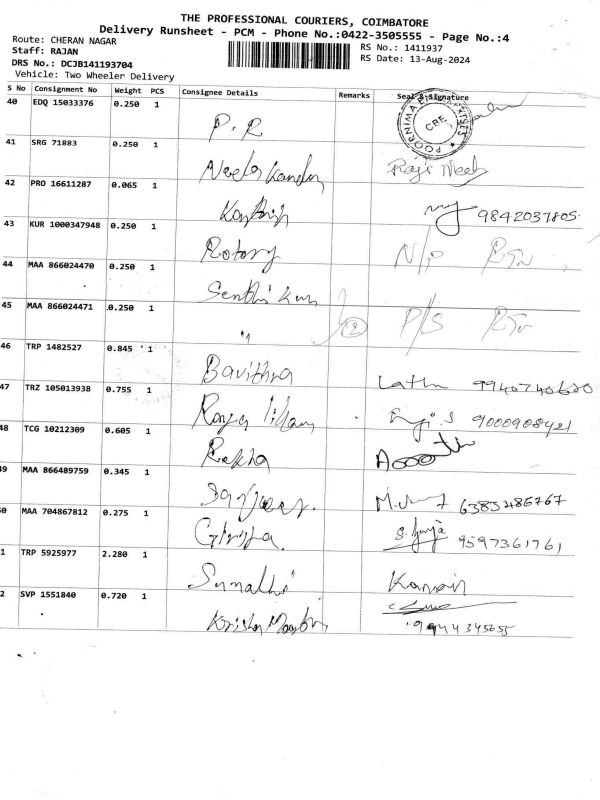 THE PROFESSIONAL COURIERS, COIMBATORE
Delivery Runsheet - PCM - Phone No.:0422-3505555 - Page No.:4
Route: CHERAN NAGAR RS No.: 1411937
Staff: RAJAN RS Date: 13-Aug-2024
DRS No.: DCJB141193704
Vehicle: Two Wheeler Delivery
S No Consignment No Weight PCS Consignee Details Remarks Seal & Signature
40 EDQ 15033376 0.250 1 P.R
CBE
41 SRG 71883 0.250 1 Neela Kandan Raji Neela
42 PRO 16611287 0.065 1 Karthik 9842037805
43 KUR 1000347948 0.250 1 Rotary N/P RTn
44 MAA 866024470 0.250 1 Senthil Kum
45 MAA 866024471 0.250 1 " (2) P/S RTn
46 TRP 1482527 0.845 1 Bavithra Latha 9940740620
47 TRZ 105013938 0.755 1 9000908421
48 TCG 10212309 0.605 1 Rekha
49 MAA 866489759 0.345 1 Sanjeev. 6383486767
50 MAA 704867812 0.275 1 Girija. 9597361761
1 TRP 5925977 2.280 1 Sumathi
2 SVP 1551840 0.720 1 9944345655